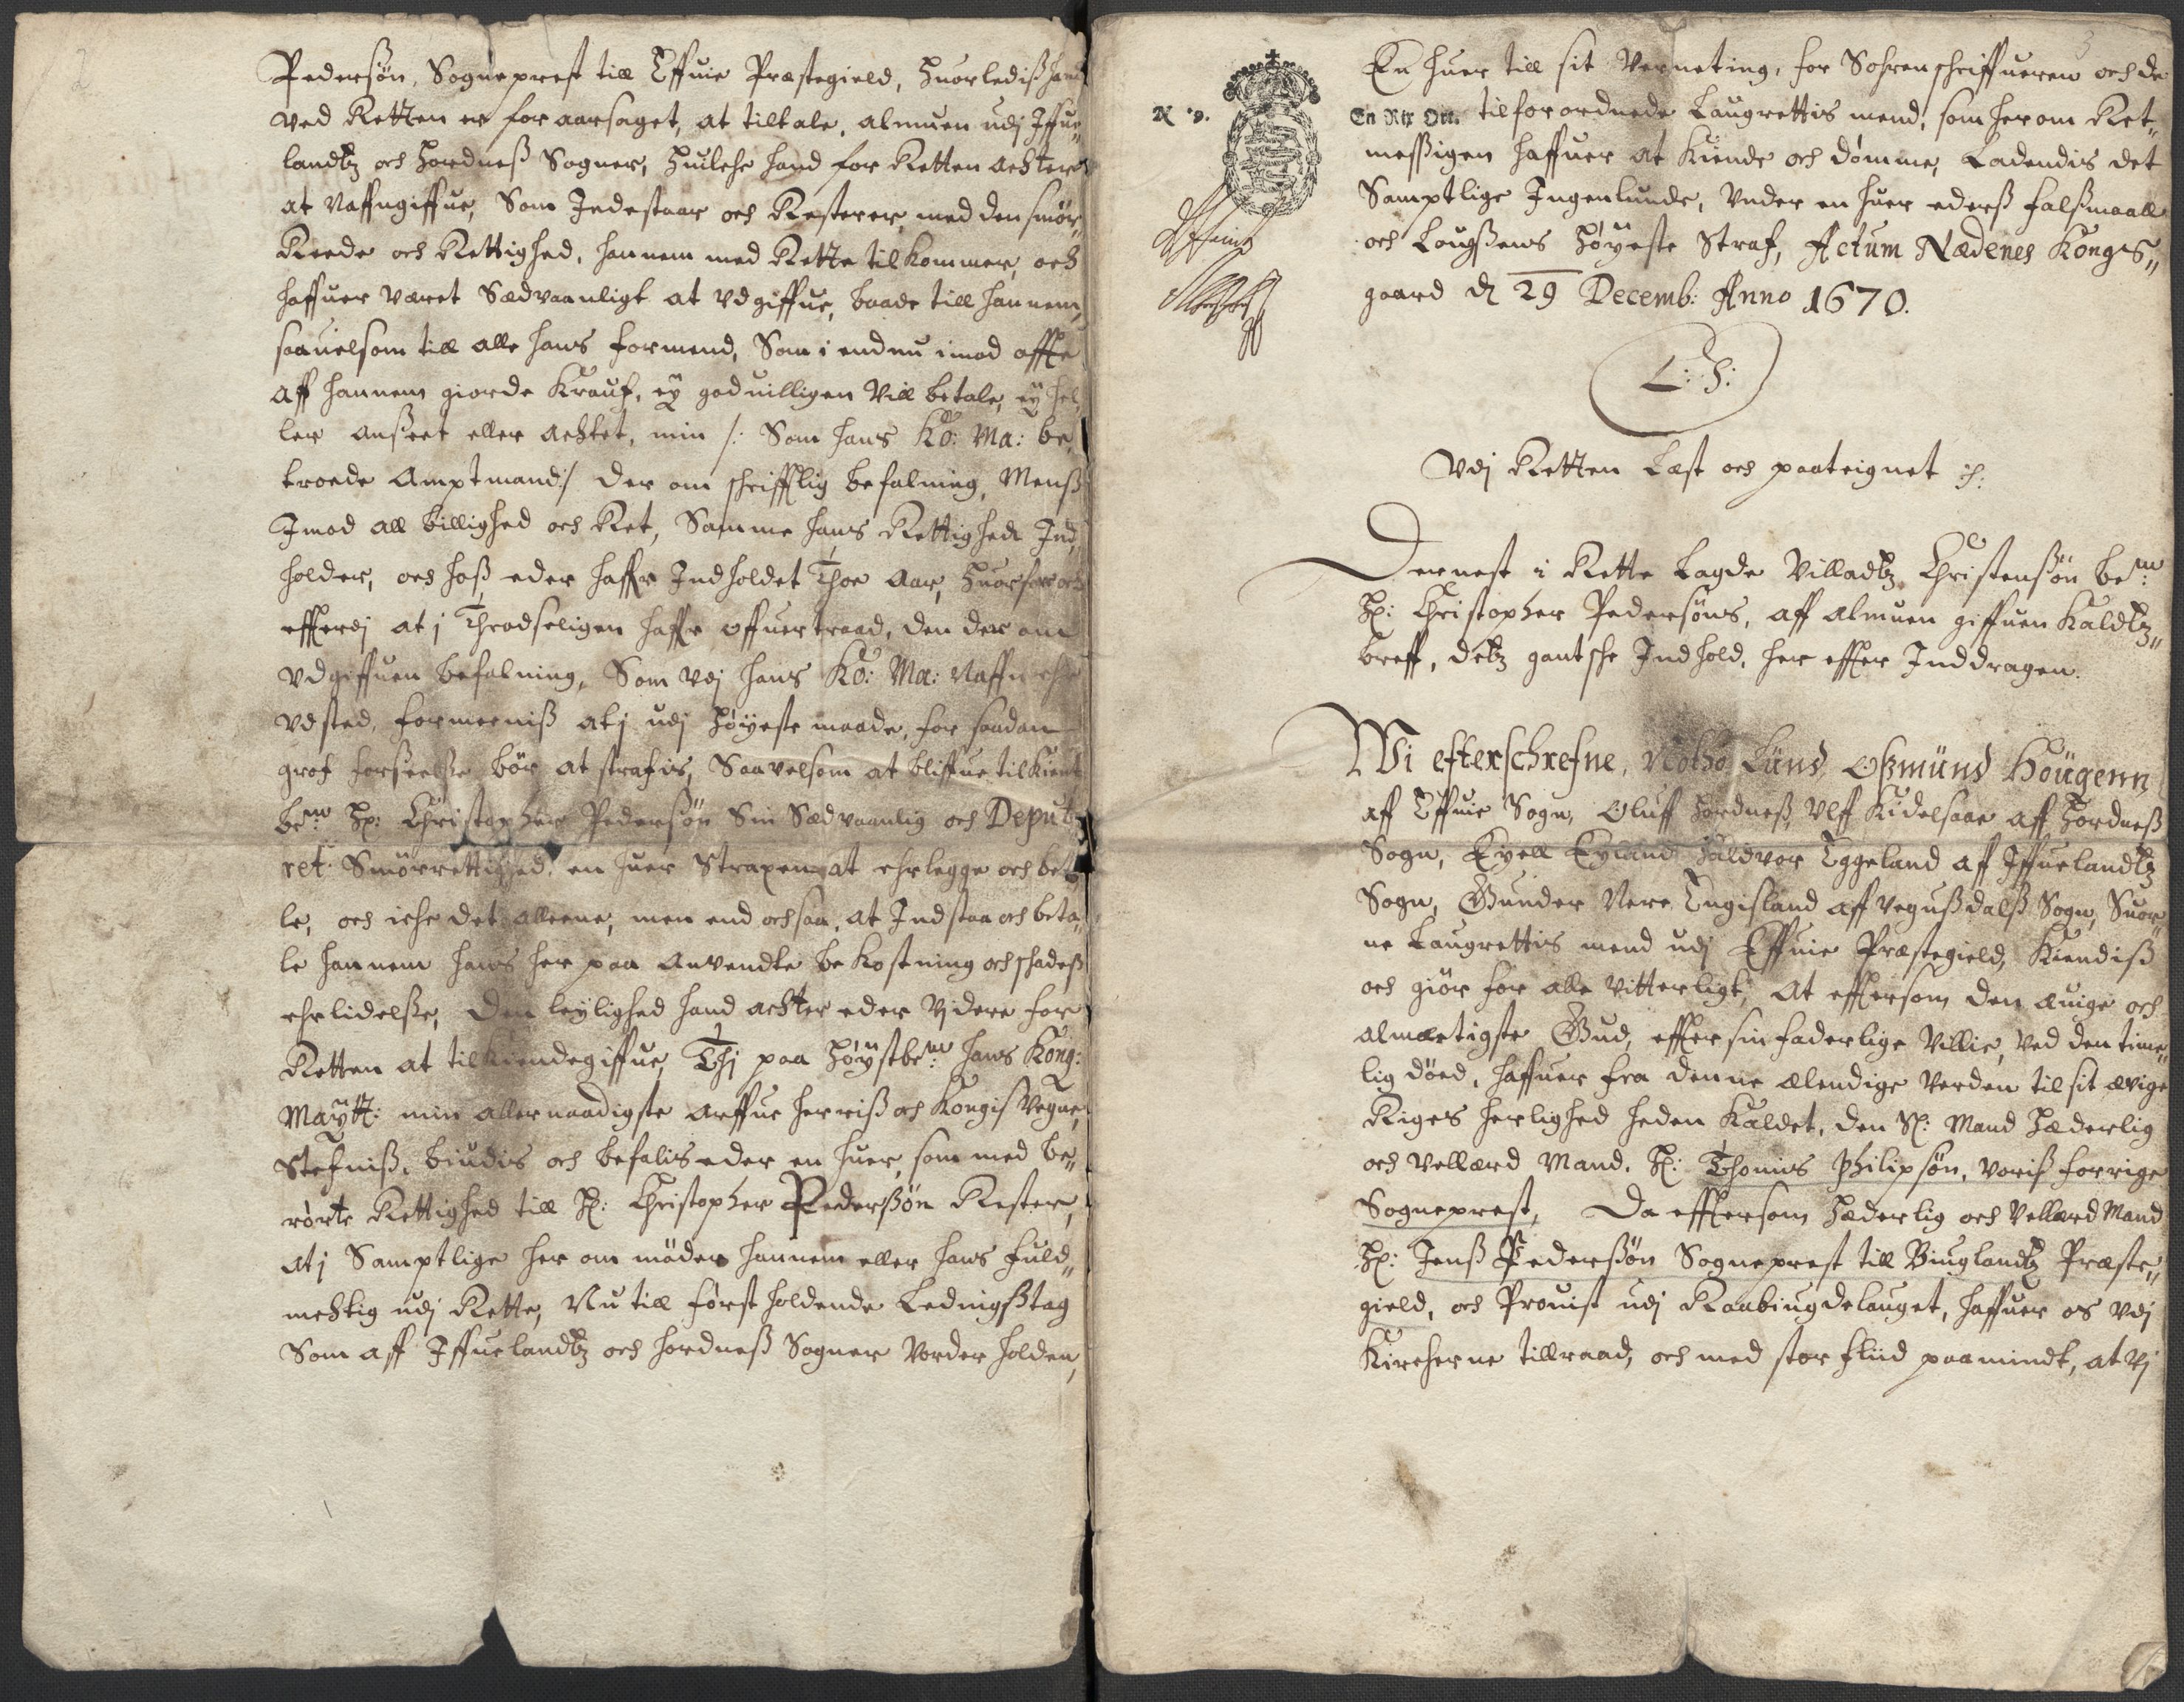 2
Pedersøn, Sogneprest till Effuie Præstegield, huorledis hand
ved Retten er foraarsaget, at tiltale, almuen udj Iffue„
landtz och Hordneß Sogner, huilche hand for Retten achter
at Naffngiffue, Som Indestaar och Resterer, med den smør„
Reede och Rettighed, hannem med Rette tilkommer, och
haffuer veret Sædvaanligt at Vdgiffue, baade till hannem,
saauelsom till alle hans formend, Som i endnu imod offte
aff hannem giorde Krauf, eÿ goduilligen Vill betale, eÿ hel„
ler anßeet eller achtet, min /: Som hans Ko: Ma: be„
troede Amptmand :/ der om schrifftlig befalning, Menß
Imod all billighed och Ret, Samme hans Rettighed Ind„
holder, och hoß eder haffr Indholdet Thoe Aar, huorfor och
effterdj at j Throdseligen haffr offuertraad, den der om
Vdgiffuen befalning, Som Vdj hans Ko: Ma: Naffn ehr
Vdsted, formeeniß atj udj høÿeste maade, for saadan
grof forseelße bør at strafis, Saavelsom at bliffue tilkient
bemt: Hr: Christopher Pedersøn Sin Sædvaanlig och Deput„
ret Smørrettighed, en huer Straxen at ehrlegge och beta
le, och iche det alleene, men end ochsaa, at Indstaa och beta„
le hannem hans her paa anvendte bekostning och schadeß
ehrlidelße, Den leÿlighed hand achter eder Videre for
Retten at tilkiendegiffue, Thj paa høÿstbemt: hans Kong:
Maÿtt: min allernaadigste arffue herriß och Kongis Vegne,
Stefniß, biudis och befalis eder en huer, som med be„
rørte Rettighed till Hr: Christopher Pederßøn Rester,
atj Samptlige her om møder hannem eller hans fuld„
mechtig udj Rette, Nu till først holdende Ledingßtag
Som aff Iffuelandtz och Hordneß Sogner Vorder holden,
3
N 9.
En Rix Ort.
En huer till sit Verneting, for Sohrenschriffueren och de
tilforordnede Laugrettis mend, som her om Ret„
meßigen haffuer at Kiende och dømme, Ladendis det
Samptlige Ingenlunde, Vnder en huer ederß falßmaall
och Lougßens høÿeste Straf, Actum Nædenes Kongs„
gaard d 29 Decemb: Anno 1670.
L: S:
Vdj Retten Læst och paateignet
Dernest i Rette Lagde Villadtz Christensøn bemt:
Hr: Christopher Pedersøns, aff Almuen giffuen Kaldtz„
breff, detz gantsche Indhold, her effter Inddragen.
Wi efterschrefne, Notho Lünd, Oßmünd Höugenn
aff Effuie Sogn, Oluff Hordneß, Vlff Kidelsaae aff Hordneß
Sogn, Eyell Eyland, Haldvor Eggeland aff Iffuelandtz
Sogn, Gunder Nere Engisland aff Vegußdalß Sogn, Suor„
ne Laugrettis mend udj Effuie Præstegield, Kiendiß
och giør for alle Vitterligt, At effter som den æuige och
almectigste Gud, effter sin faderlige Villie, Ved den time„
lig døed, haffuer fra denne ælendige Verden til sit ævige
Riges herlighed heden Kaldet, den Sl: Mand Hæderlig
och Vellærd Mand, Hr: Thomis Philipsøn, voriß forrige
Sogneprest, Da effter som Hæderlig och Vellærd Mand
Hr: Jenß Pederßøn Sogneprest till Biuglandtz Præste„
gield, och Prouist udj Raabiugdelauget, haffuer os Vdj
Kircherne tillraad, och med stor fliid paamindt, at Vj